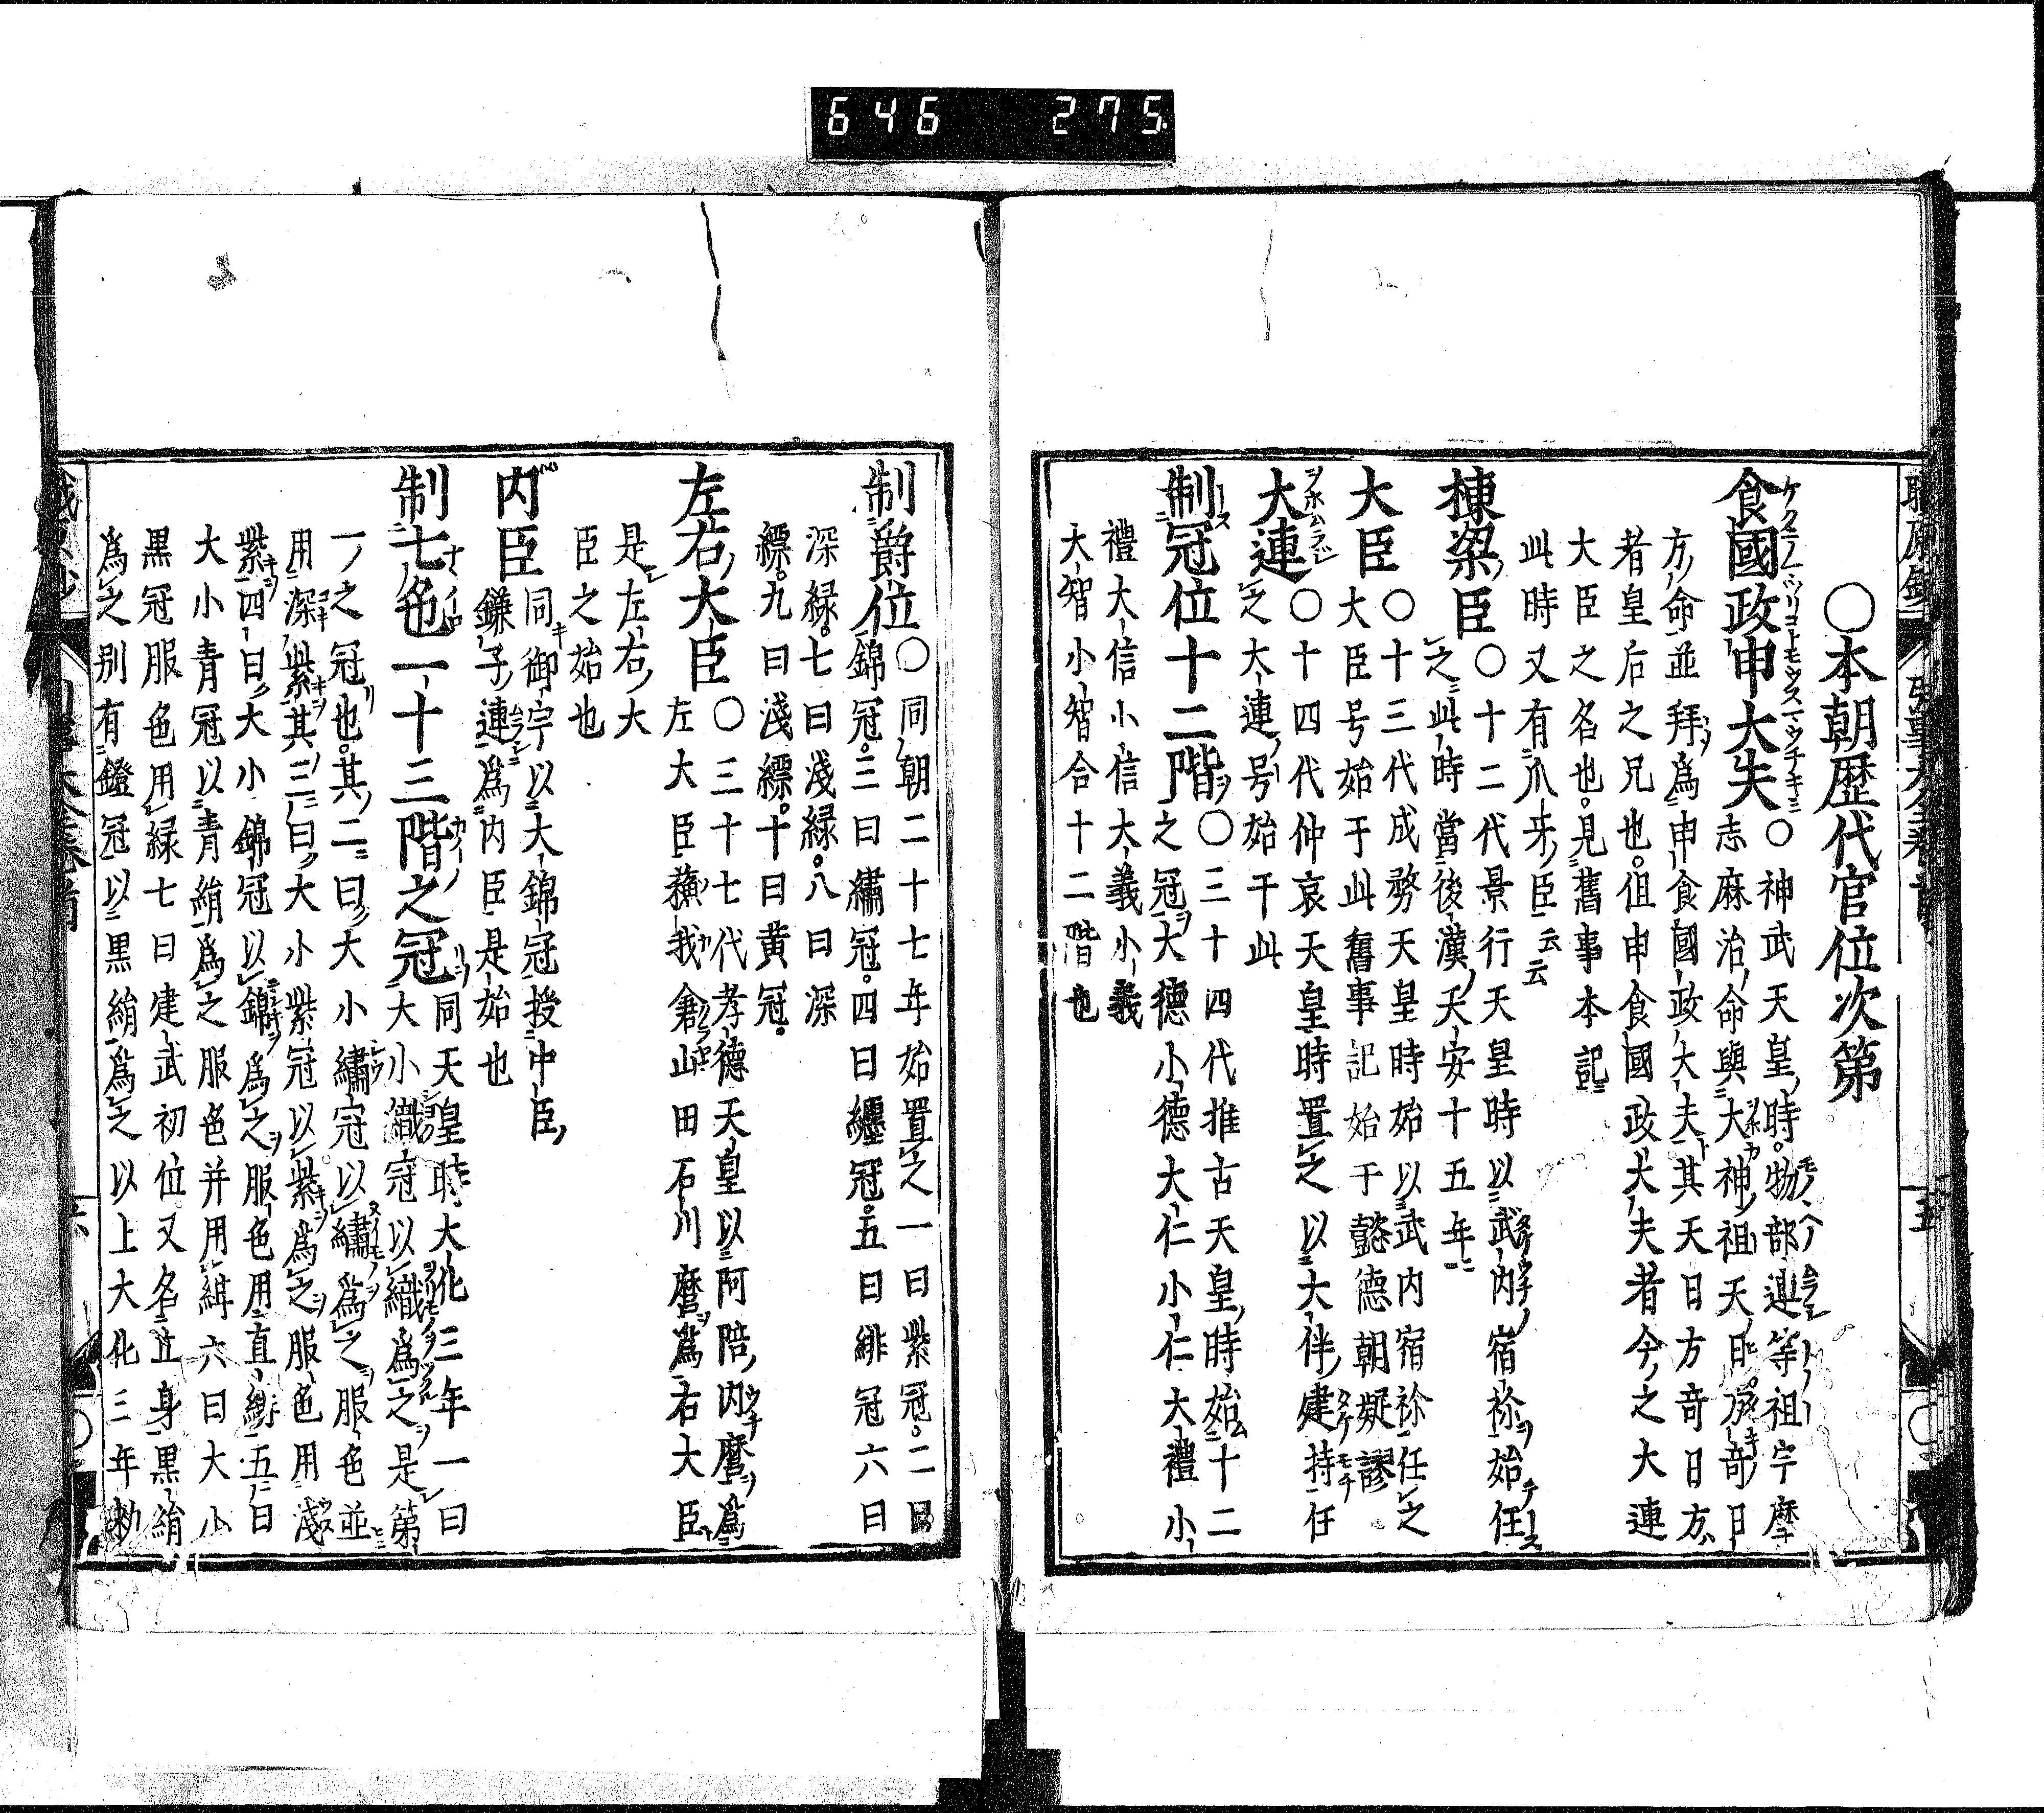 646 275
〇本朝歴代官位次第
食國政申大夫〇神武天皇時物部連等祖宇摩
志麻治命與大神祖天日方奇日
方命並拜爲申食國政大夫其天日方奇日方
者皇后之兄也但申食國政大夫者今之大連
大臣之名也見舊事本記
此時又有爪牙臣云云
棟梁臣〇十二代景行天皇時以武内宿祢始任
之此時當後漢天安十五年
大臣〇十三代成務天皇時始以武内宿祢任之
大臣号始于此舊事記始于懿德朝疑謬
大連〇十四代仲哀天皇時置之以大伴建持任
之大連号始于此
制冠位十二階〇三十四代推古天皇時始十二
之冠大德小德大仁小仁大禮小
禮大信小信大義小義
大智小智合十二階也
制爵位〇同朝二十七年始置之一曰紫冠二曰
錦冠三曰繡冠四曰纒冠五曰緋冠六曰
深緑七曰淺緑八曰深
縹九曰淺縹十曰黄冠
左右大臣〇三十七代孝德天皇以阿陪内麿爲
左大臣蘓我倉山田石川麿爲右大臣
是左右大
臣之始也
内臣同御宇以大錦冠授中臣
鎌子連爲内臣是始也
制七色一十三階之冠同天皇時大化三年一曰
大小織冠以織爲之是第
一之冠也其二曰大小繡冠以繡爲之服色並
用深紫其三曰大小紫冠以紫爲之服色用淺
紫四曰大小錦冠以錦爲之服色用直纁五曰
大小青冠以青絹爲之服色并用緋六曰大小
黒冠服色用緑七曰建武初位又名立身黒絹
爲之別有鐙冠以黒絹爲之以上大化三年勅